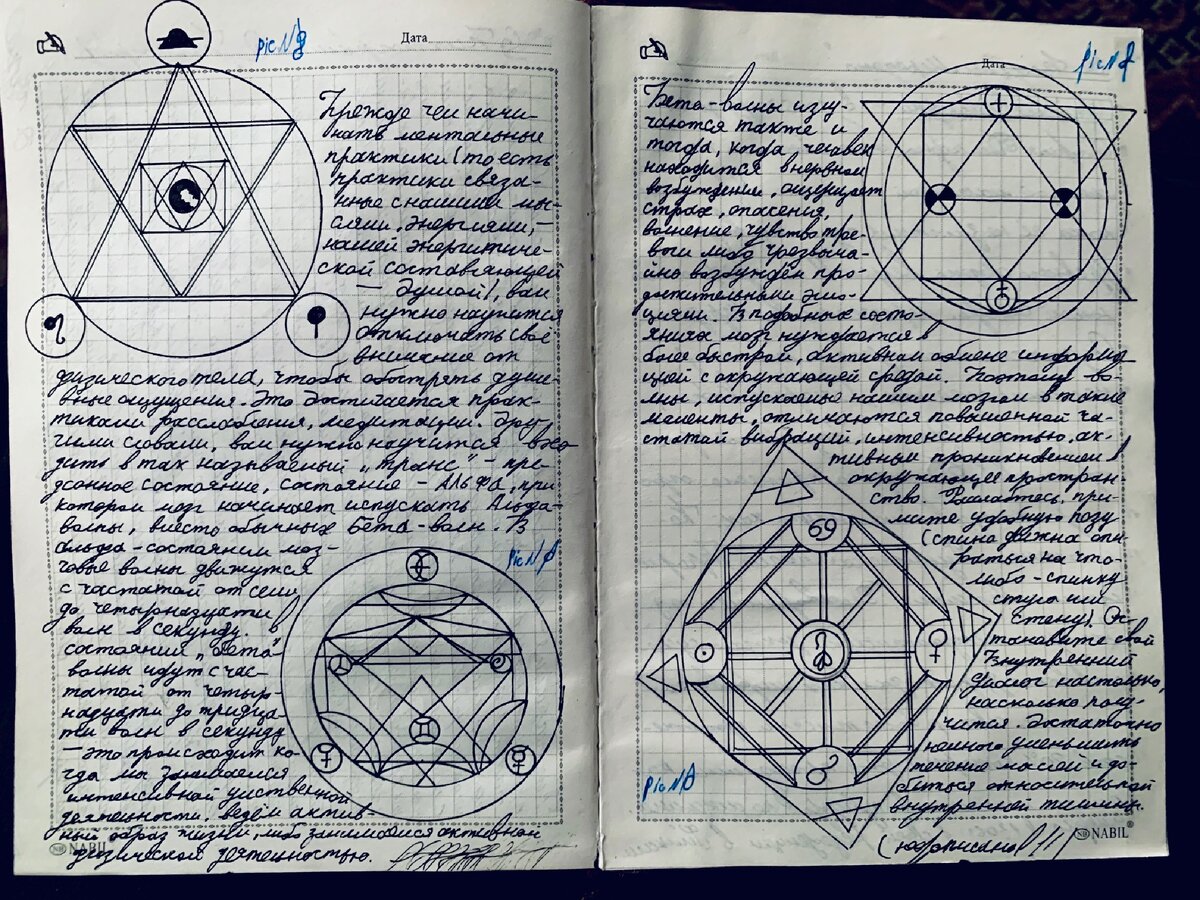 pic №8
Дата
Прежде чем начи-
нать ментальные
практики (то есть
практики связа-
нные с нашими мы-
слями, энергиями,
нашей энергетиче-
ской составляющей
— душой), вам
нужно научится
отключать своё
внимание от
физического тела, чтобы обострять душе-
вные ощущения. Это достигается прак-
тиками расслабления, медитации. Дру-
гими словами, вам нужно научится — вхо-
дить в так называемый „транс" — пре-
дсонное состояние, состояние — Альфа, при
котором мозг начинает испускать Альфа-
волны, вместо обычных Бета-волн. В
альфа-состоянии моз-
говые волны движутся
с частатой от семи
до четырнадцати
волн в секунду. В
состоянии „бета"
волны идут с час-
татой от четыр-
надцати до тридца-
ти волн в секунду
— это происходит ко-
гда мы занимаемся
интенсивной умственной
деятельностью, ведём актив-
ный образ жизни, либо занимаемся активной
физической деятельностью.
pic №8
NB NABIL
Дата
pic №8
Бета-волны излу-
чаются также и
тогда, когда человек
находится в нервном
возбуждении, ощущает
страх, опасения,
волнение, чувство тре-
воги либо чрезвыча-
йно возбуждён про-
должительными эмо-
циями. В подобных состо-
яниях мозг нуждается в
более быстрой, активном обмене информа-
цией с окружающей средой. Поэтому во-
лны, испускаемые нашим мозгом в такие
моменты, отличаются повышенной ча-
статой вибраций, интенсивностью, ак-
тивным проникновением в
окружающее простран-
ство. Расслабтесь, при-
мите удобную позу
(спина должна опи-
раться на что-
либо — спинку
стула или
стену). Ос-
тановите свой
Внутренний
диалог настолько,
насколько полу-
чится. Достаточно
немного уменьшить
течение мыслей и до-
биться относительной
внутренней тишины.
69
pic №8
NB NABIL